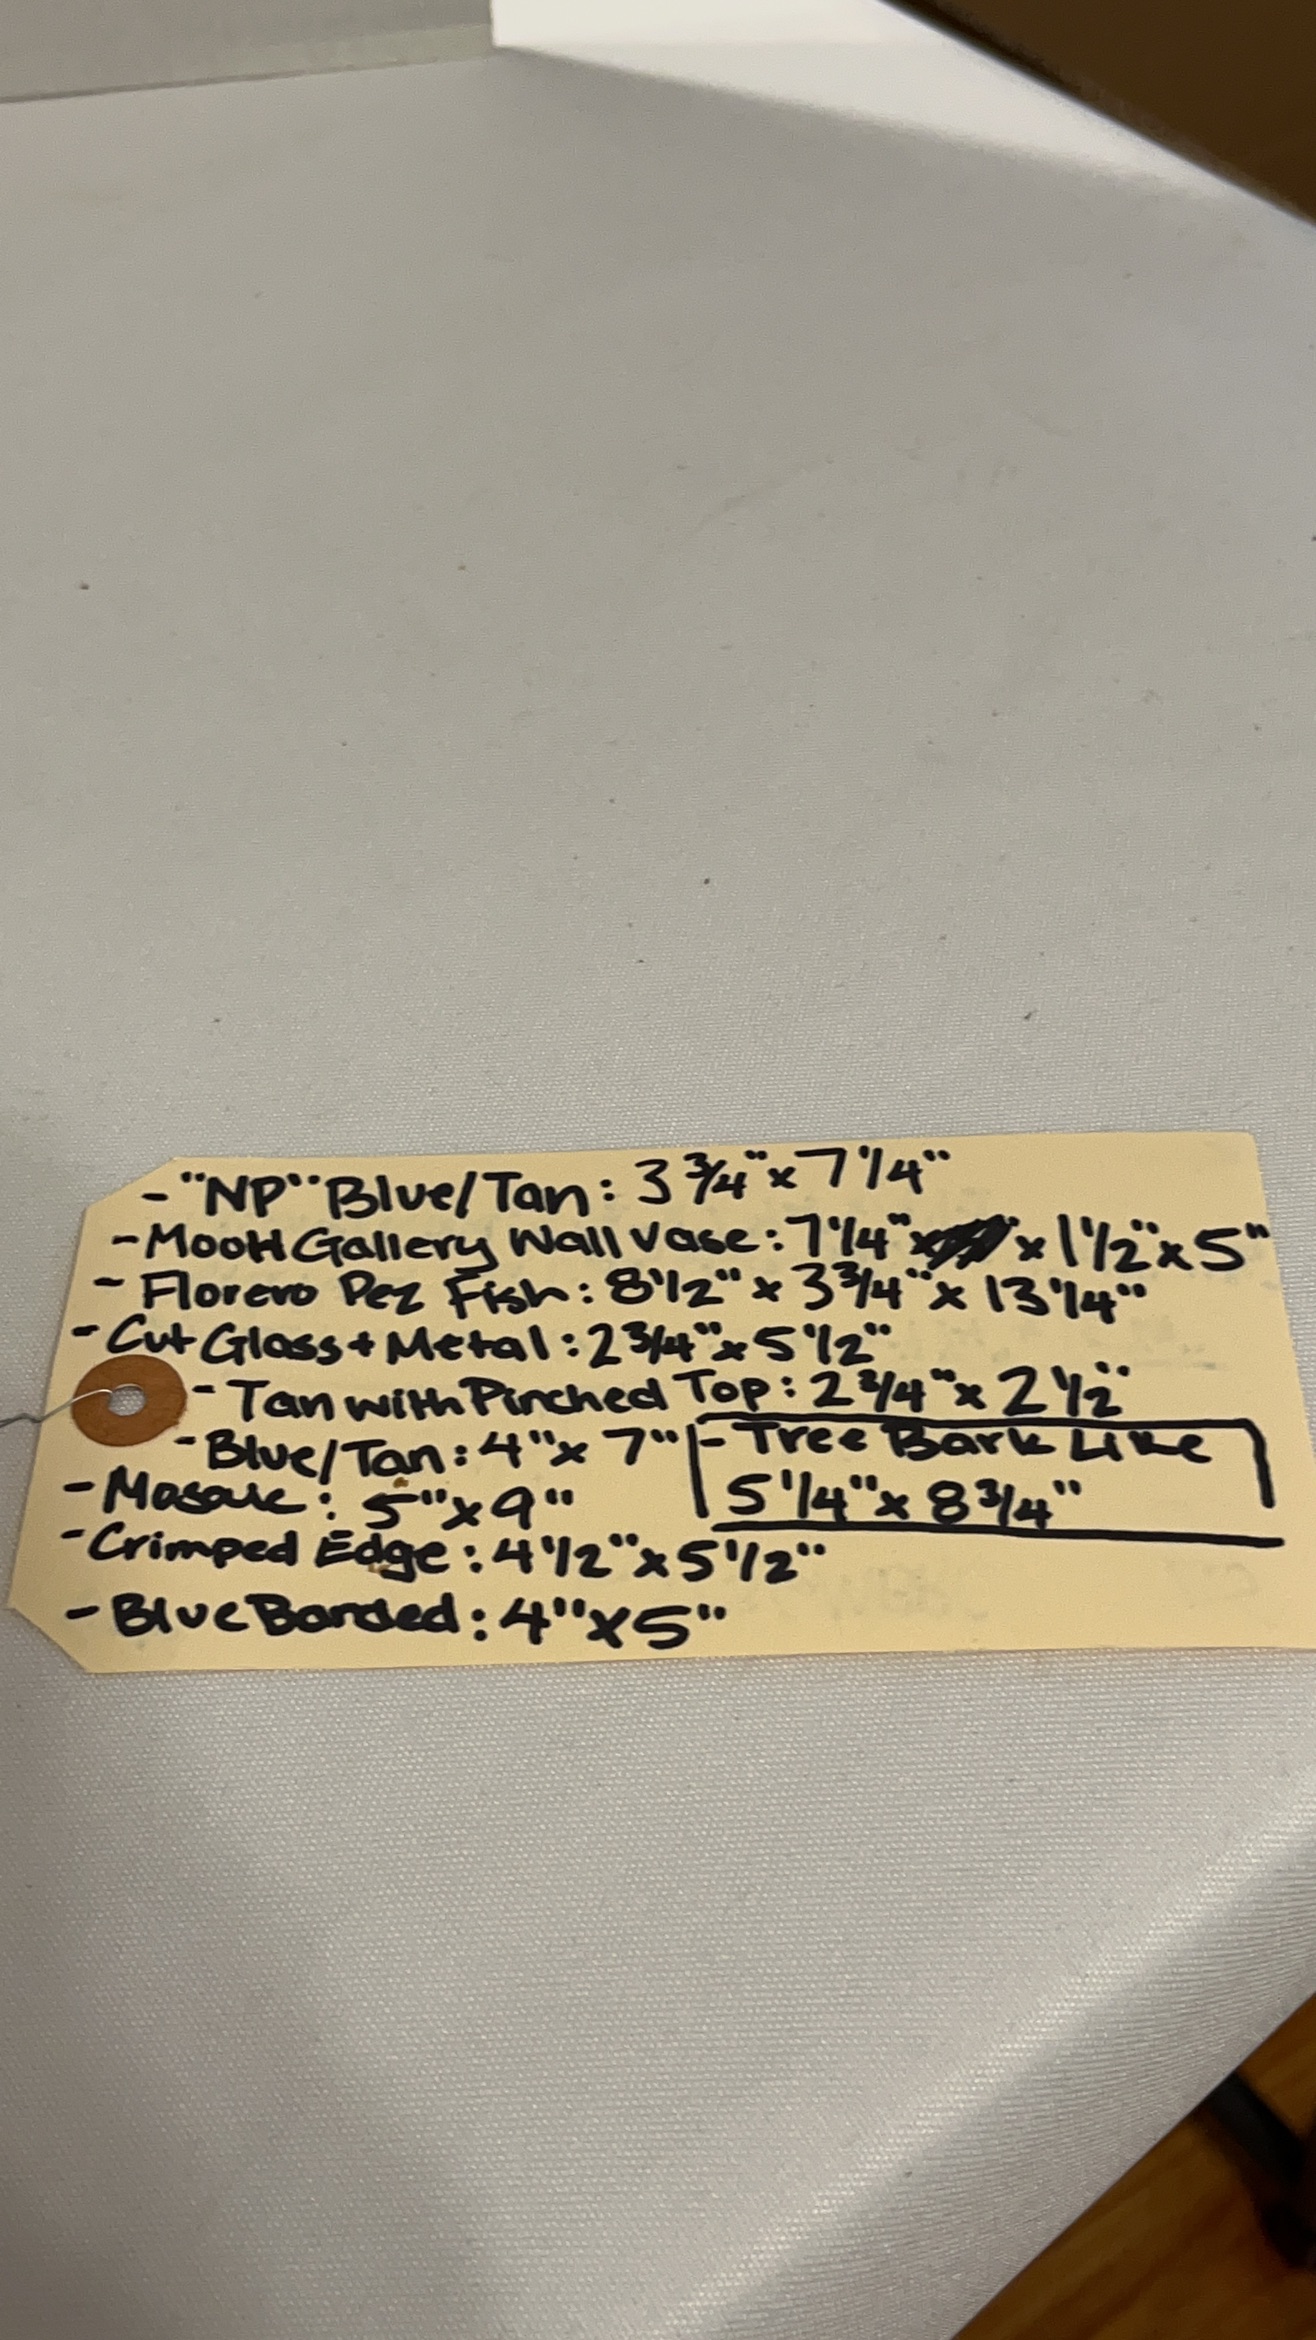 - "NP" Blue/Tan: 3 3/4" x 7 1/4"
- MooH Gallery Wall Vase: 7 1/4" x x 1 1/2" x 5"
- Florero Pez Fish: 8 1/2" x 3 3/4" x 13 1/4"
- Cut Glass + Metal: 2 3/4" x 5 1/2"
- Tan with Pinched Top: 2 3/4" x 2 1/2"
- Blue/Tan: 4" x 7"
- Tree Bark Like
5 1/4" x 8 3/4"
- Mosaic: 5" x 9"
- Crimped Edge: 4 1/2" x 5 1/2"
- Blue Banded: 4" x 5"